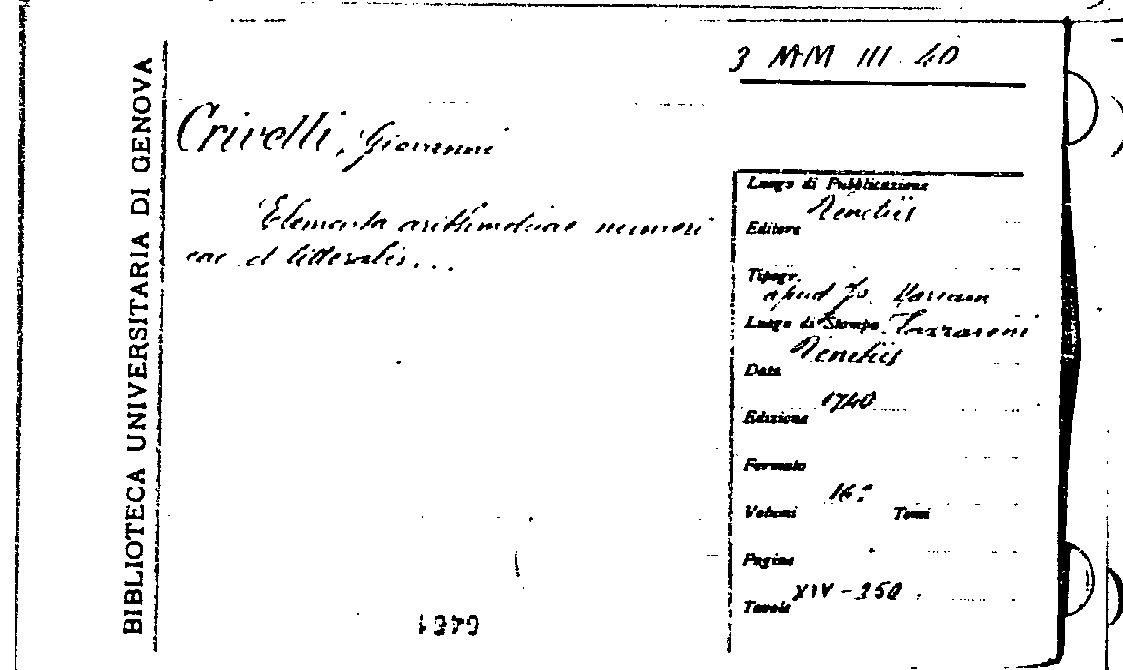 3 MM III 40
BIBLIOTECA UNIVERSITARIA DI GENOVA
Crivelli, Giovanni
Elementa arithmeticae numeri
cae et litteralis...
Luogo di Pubblicazione
Venetiis
Editore
Tipogr.
apud Jo. Mariam
Luogo di Stampa Lazzaroni
Venetiis
Data
1740
Edizione
Formato
16º
Volumi Tomi
Pagine
XIV-250
Tavole